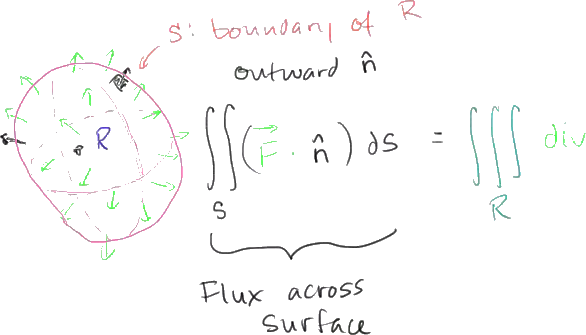 S: boundary of R
outward n̂
R
∬_S (F⃗ · n̂) dS = ∭_R div
Flux across
surface